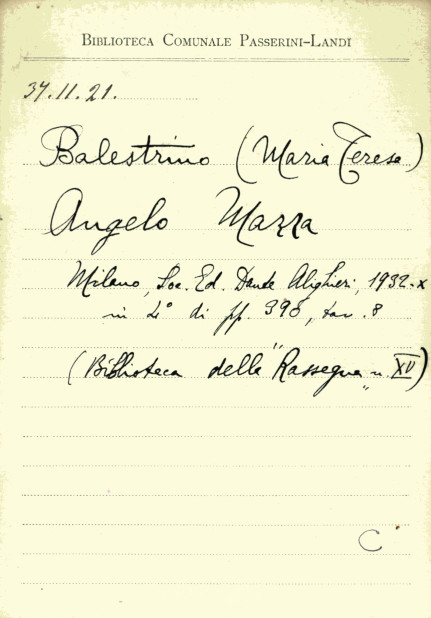 BIBLIOTECA COMUNALE PASSERINI-LANDI
34.11.21.
Balestrino (Maria Teresa)
Angelo Mazza
Milano, Soc. Ed. Dante Alighieri, 1932-X
in 4° di pp. 398, tav. 8
(Biblioteca della "Rassegna" n. XV)
C